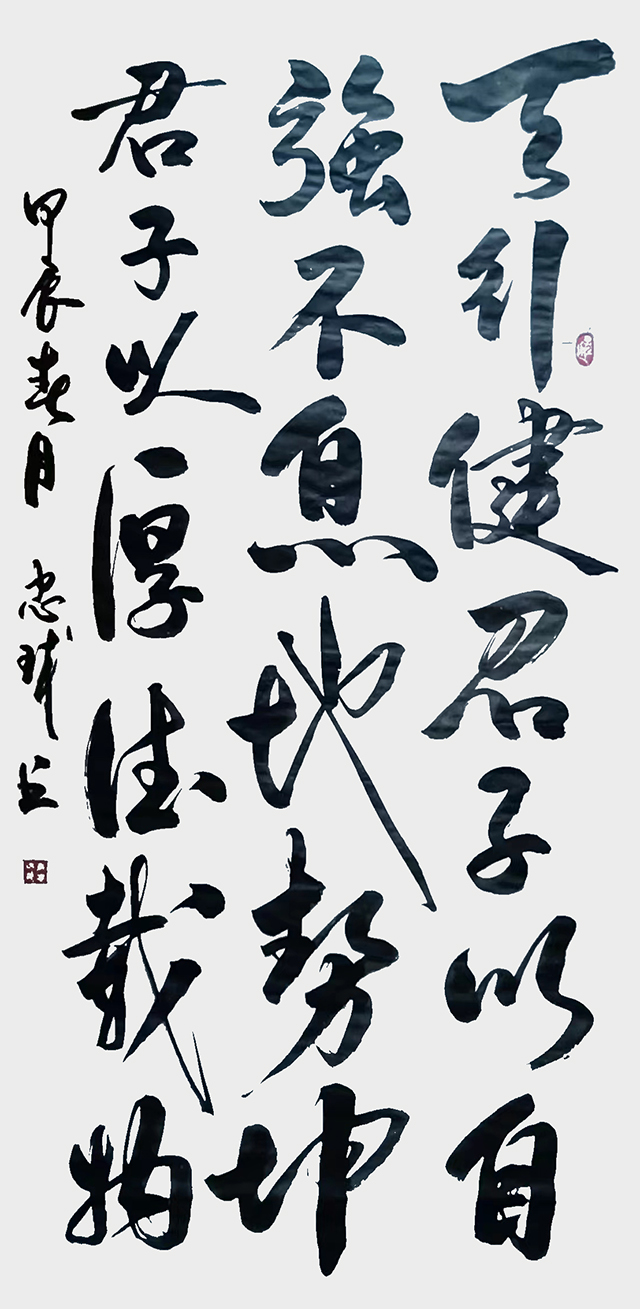 天行健君子以自
強不息地勢坤
君子以厚德載物
甲辰春月 忠球书